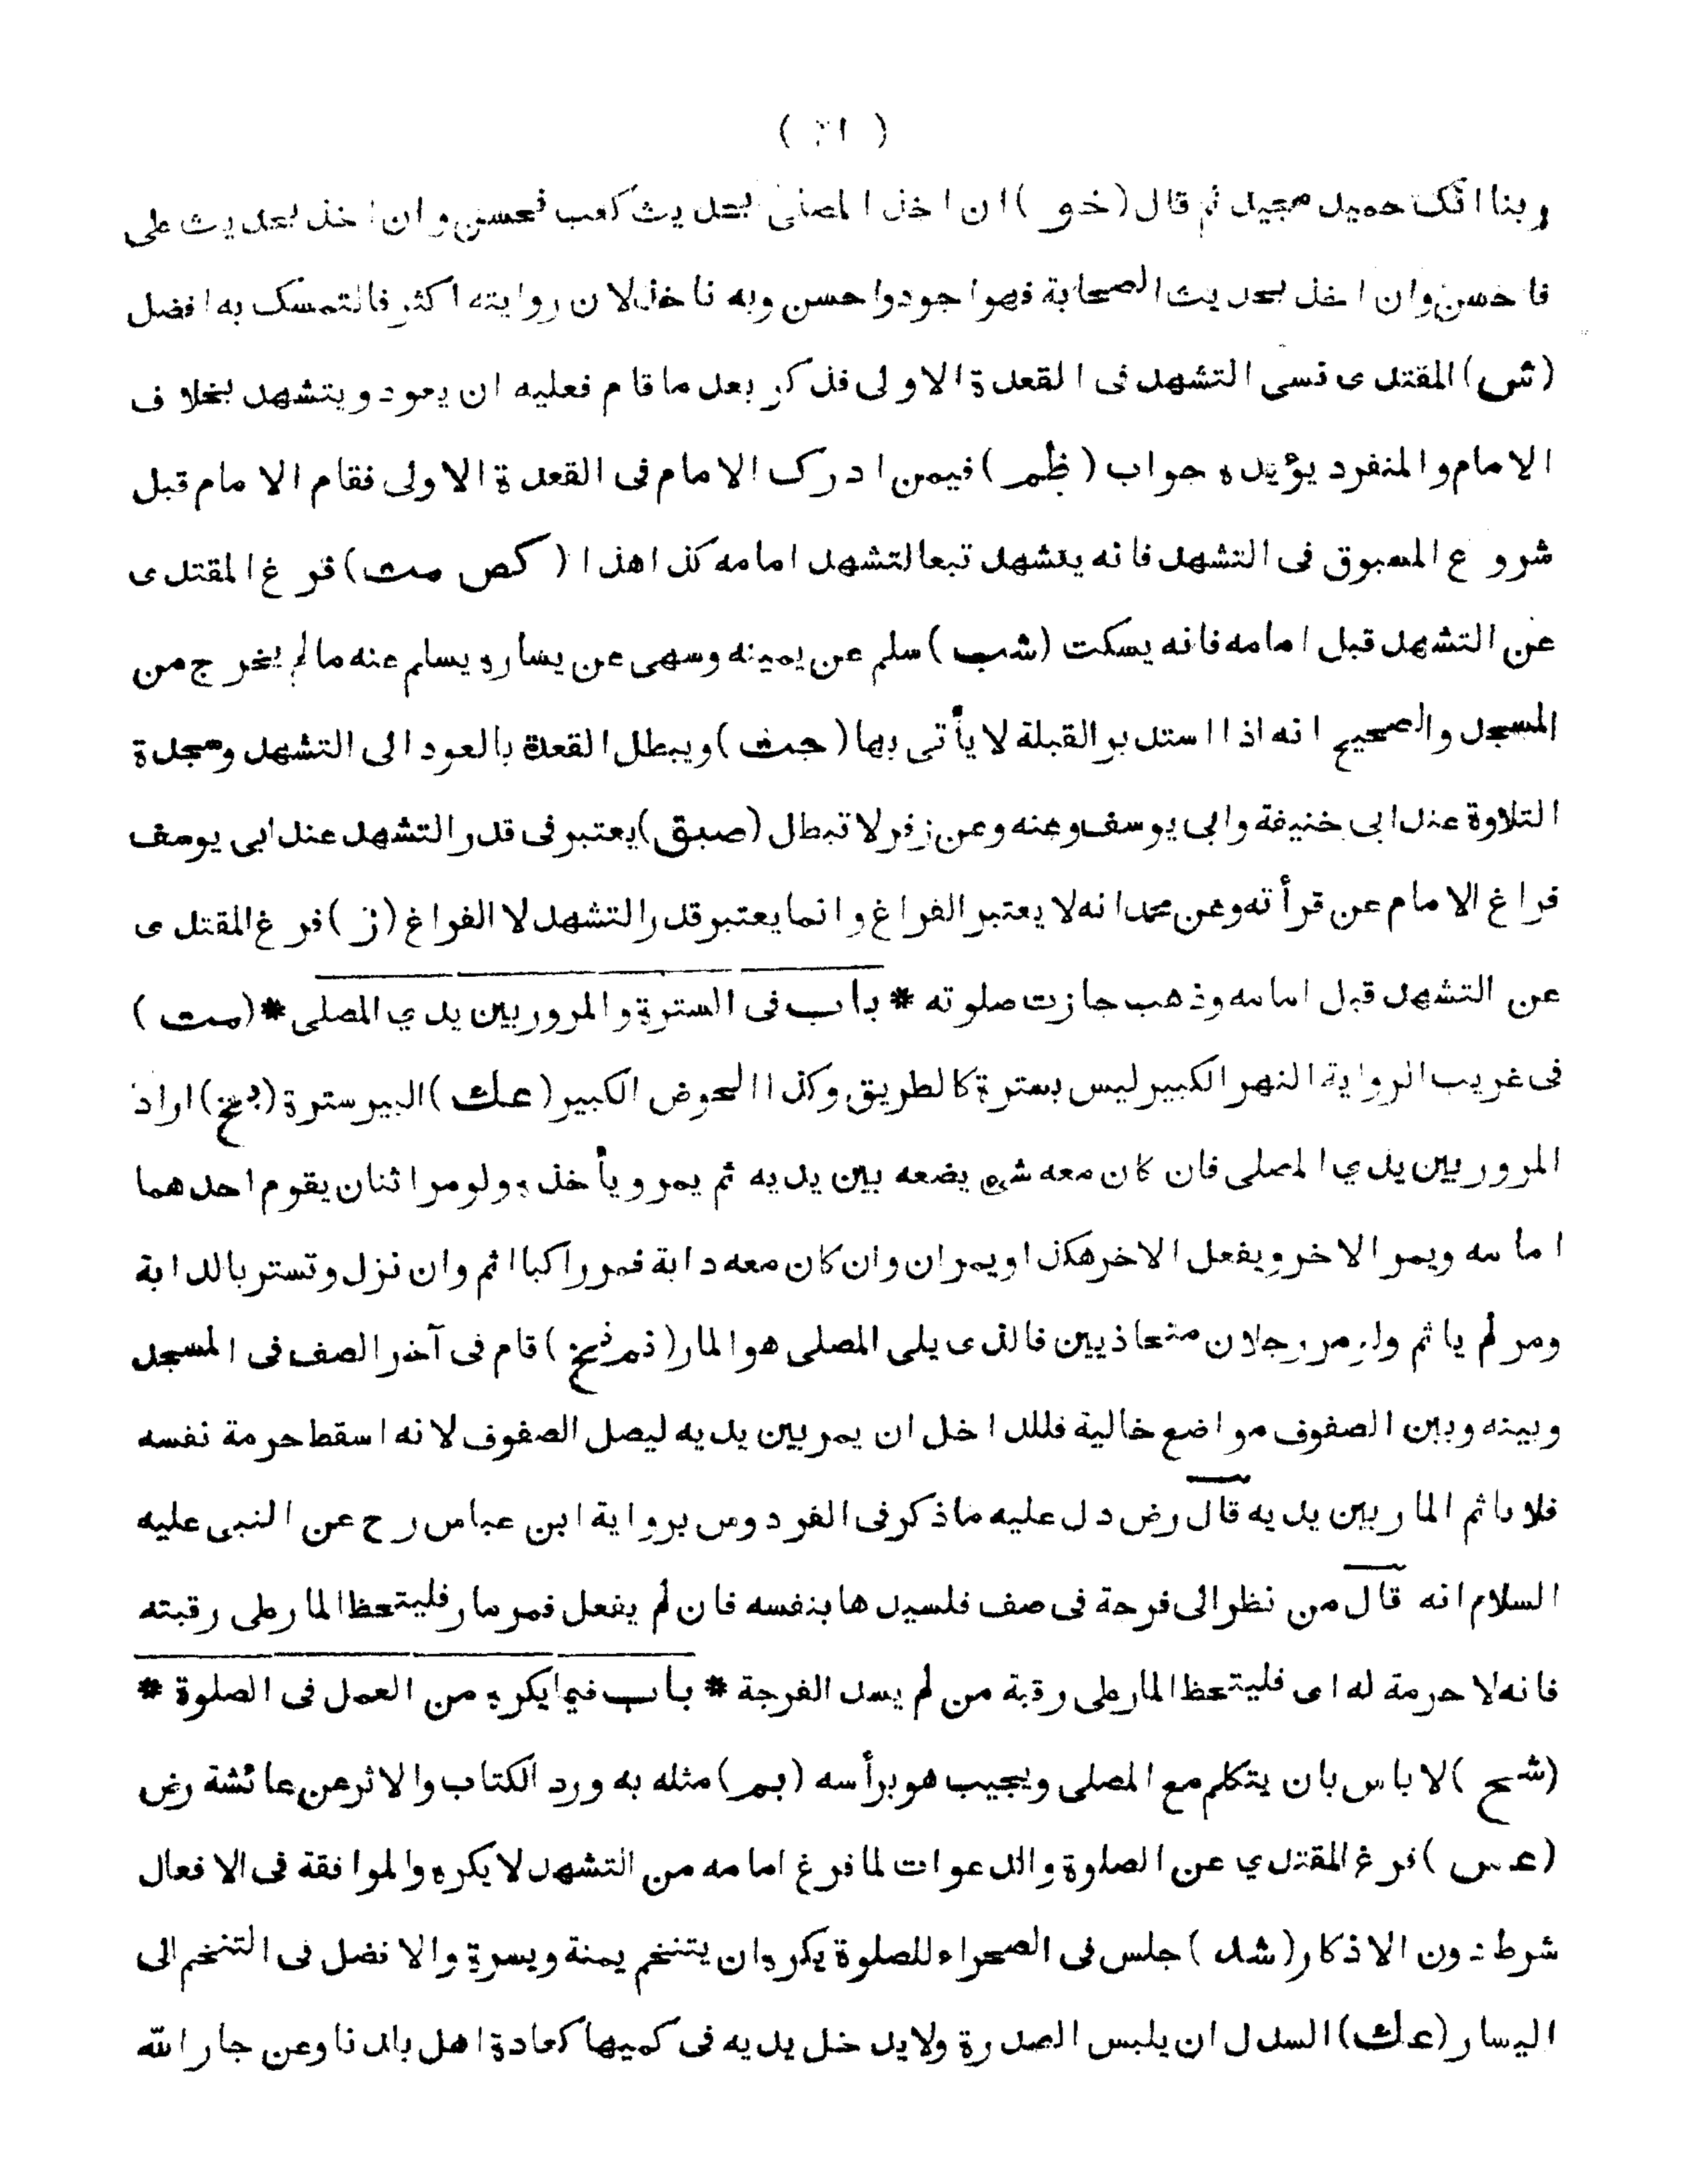 ربنا انك حميد مجيد ثم قال (خو) ان اخذ المصلى بحديث كعب فحسن وان اخذ بحديث على
فاحسن وان اخذ بحديث الصحابة فهو اجود واحسن وبه ناخذ لان روايته اكثر فالتمسك به افضل
(ش) المقتدى نسى التشهد فى القعدة الاولى فذكر بعد ما قام فعليه ان يعود ويتشهد بخلاف
الامام والمنفرد يؤيده جواب (ظم) فيمن ادرك الامام فى القعدة الاولى فقام الامام قبل
شروع المسبوق فى التشهد فانه يتشهد تبعا لتشهد امامه كذا هذا (كص مت) فرغ المقتدى
عن التشهد قبل امامه فانه يسكت (شب) سلم عن يمينه وسهى عن يساره يسلم عنه ما لم يخرج من
المسجد والصحيح انه اذا استدبر القبلة لا يأتى بها (جث) ويبطل القعدة بالعود الى التشهد وسجدة
التلاوة عند ابى حنيفة وابى يوسف وعنه وعن زفر لا تبطل (صبق) يعتبر فى قدر التشهد عند ابى يوسف
فراغ الامام عن قرأته وعن محمد انه لا يعتبر الفراغ وانما يعتبر قدر التشهد لا الفراغ (ز) فرغ المقتدى
عن التشهد قبل امامه وذهب جازت صلوته * باب فى السترة والمرور بين يدي المصلى * (مت)
فى غريب الرواية النهر الكبير ليس بسترة كالطريق وكذا الحوض الكبير (عك) البير سترة (بخ) اراد
المرور بين يدي المصلى فان كان معه شىء يضعه بين يديه ثم يمر و يأخذه ولو مر اثنان يقوم احدهما
امامه ويمر الاخر ويفعل الاخر هكذا ويمران وان كان معه دابة فمر راكبا اثم وان نزل وتستر بالدابة
ومر لم ياثم ولو مر رجلان متحاذيين فالذى يلى المصلى هو المار (نخ) قام فى آخر الصف فى المسجد
وبينه وبين الصفوف مواضع خالية فللداخل ان يمر بين يديه ليصل الصفوف لانه اسقط حرمة نفسه
فلا ياثم المار بين يديه قال رض دل عليه ما ذكر فى الفردوس برواية ابن عباس رح عن النبى عليه
السلام انه قال من نظر الى فرجة فى صف فليسدها بنفسه فان لم يفعل فمر مار فليتخط المار على رقبته
فانه لا حرمة له اى فليتخط المار على رقبة من لم يسد الفرجة * باب فيما يكره من العمل فى الصلوة *
(شح) لا باس بان يتكلم مع المصلى ويجيب هو برأسه (بم) مثله به ورد الكتاب والاثر عن عائشة رض
(عس) فرغ المقتدي عن الصلوة والدعوات لما فرغ امامه من التشهد لا يكره والموافقة فى الافعال
شرط دون الاذكار (شد) جلس فى الصحراء للصلوة يكره ان يتنخم يمنة ويسرة والافضل فى التنخم الى
اليسار (عك) السدل ان يلبس الصدرة ولا يدخل يديه فى كميها كعادة اهل بلدنا وعن جار الله